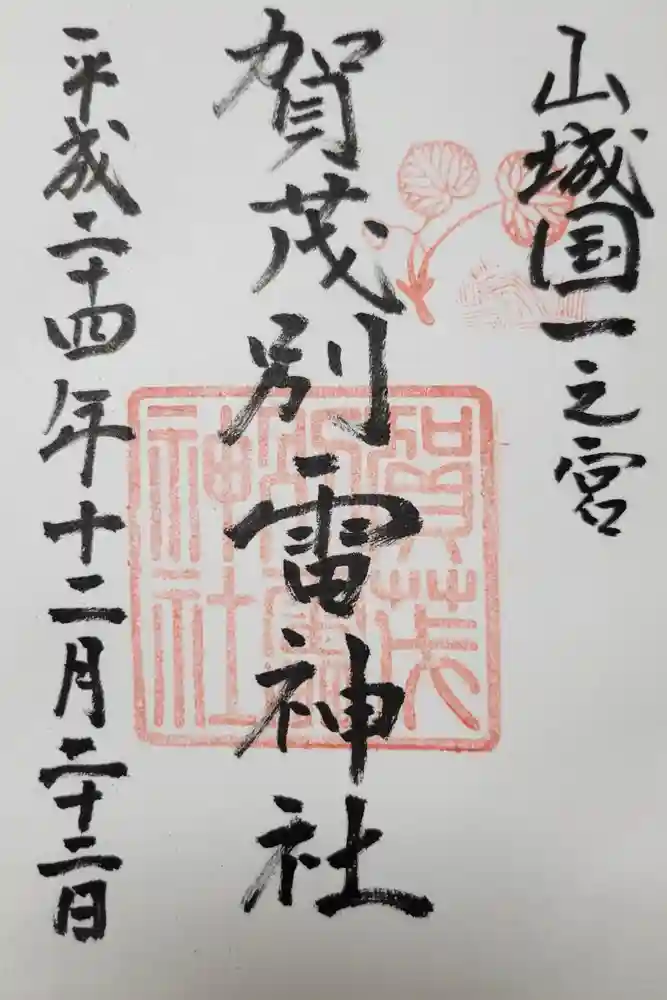 山城国一之宮
賀茂別雷神社
賀茂別雷神社
平成二十四年十二月二十三日